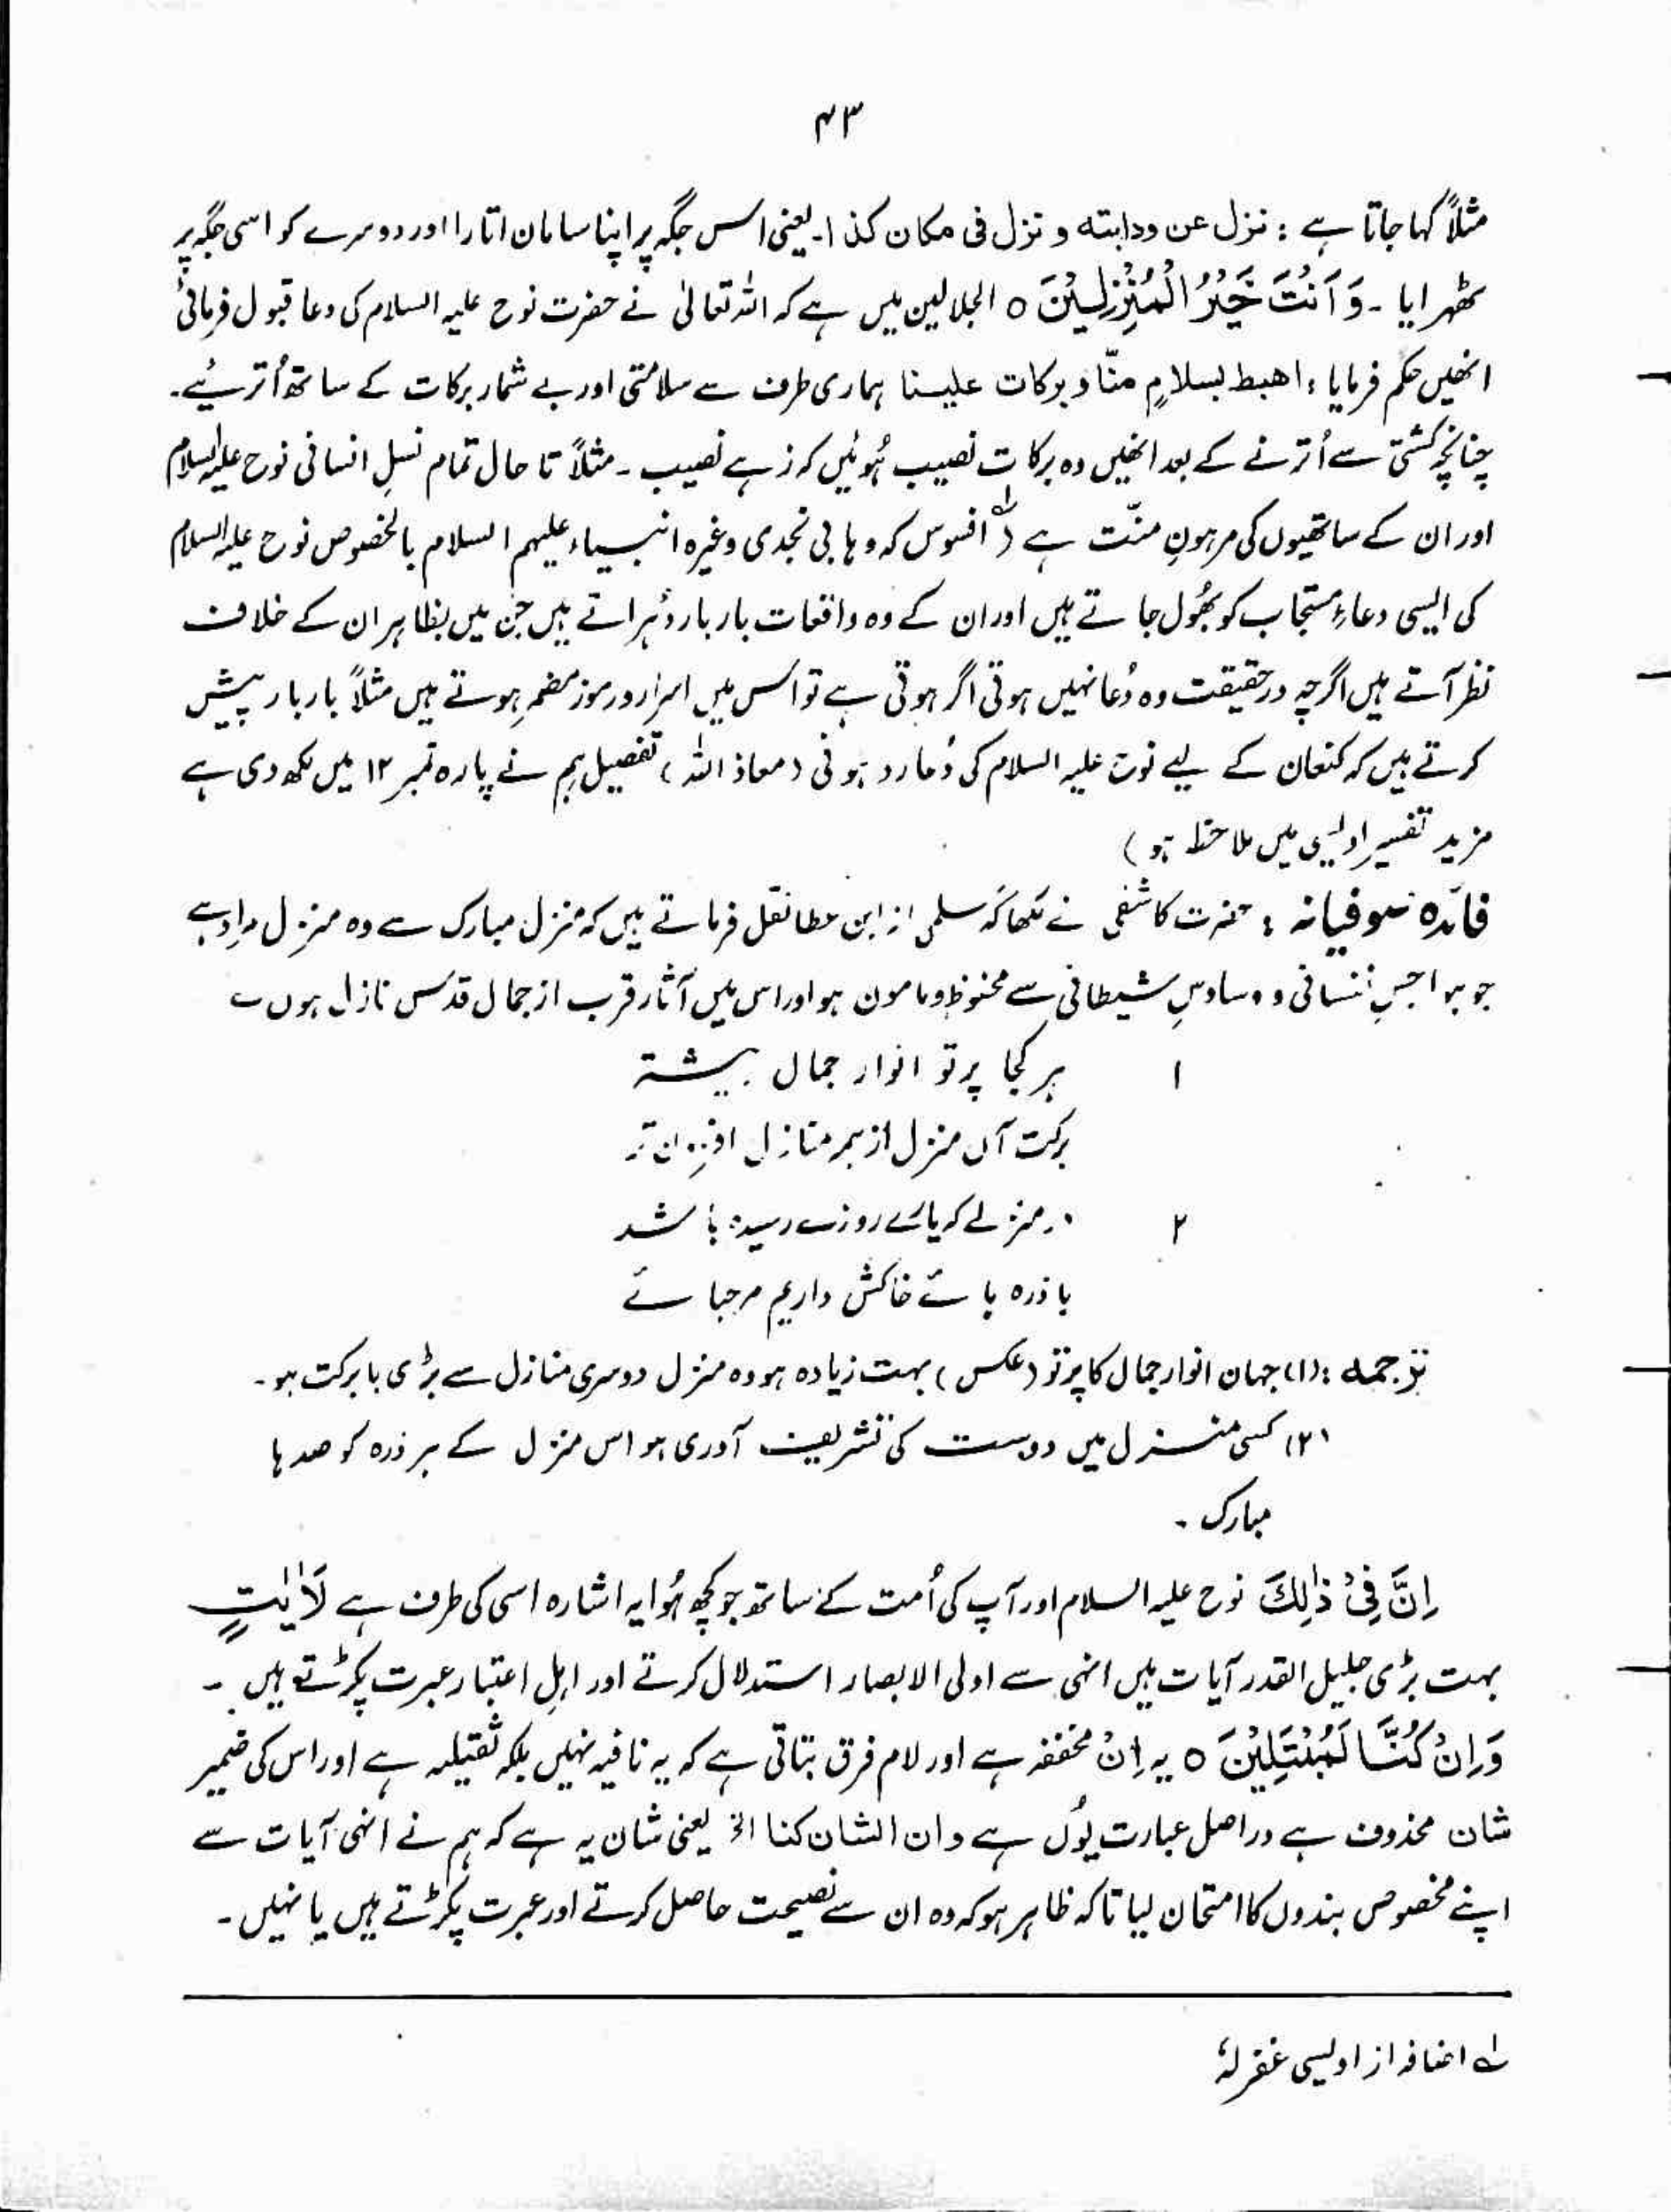 ۴۳
مثلاً کہا جاتا ہے : نزل عن ودابته و نزل فی مکان کذا۔ یعنی اس جگہ پر اپنا سامان اتارا اور دوسرے کو اسی جگہ پر
ٹھہرایا ۔ وَ اَنْتَ خَیْرُ الْمُنْزِلِیْنَ ○ الجلالین میں ہے کہ اللہ تعالیٰ نے حضرت نوح علیہ السلام کی دعا قبول فرمائی
انھیں حکم فرمایا : اهبط بسلامٍ منّا وبرکات علیسنا ہماری طرف سے سلامتی اور بے شمار برکات کے ساتھ اُتریے۔
چنانچہ کشتی سے اُترنے کے بعد انھیں وہ برکات نصیب ہُوئیں کہ زہے نصیب ۔ مثلاً تا حال تمام نسلِ انسانی نوح علیہ السلام
اور ان کے ساتھیوں کی مرہونِ منّت ہے (لہ افسوس کہ وہابی نجدی وغیرہ انبیاء علیہم السلام بالخصوص نوح علیہ السلام
کی ایسی دعاءِ مستجاب کو بھُول جاتے ہیں اور ان کے وہ واقعات بار بار دُہراتے ہیں جن میں بظاہر ان کے خلاف
نظر آتے ہیں اگرچہ درحقیقت وہ دُعا نہیں ہوتی اگر ہوتی ہے تو اس میں اسرار و رموز مضمر ہوتے ہیں مثلاً بار بار پیش
کرتے ہیں کہ کنعان کے لیے نوح علیہ السلام کی دُعا رد ہوئی (معاذ اللہ) تفصیل ہم نے پارہ نمبر ۱۲ میں لکھ دی ہے
مزید تفسیر اویسی میں ملاحظہ ہو )
فائدہ صوفیانہ : حضرت کاشفی نے لکھا کہ سلمی از ابن عطا نقل فرماتے ہیں کہ منزل مبارک سے وہ منزل مراد ہے
جو ہواجسِ نفسانی و وساوسِ شیطانی سے محفوظ و مامون ہو اور اس میں آثار قرب از جمال قدس نازل ہوں ؎
۱ ہر کجا پرتو انوار جمال بیشتر
برکت آں منزل از ہمہ منازل افزوں تر
۲ در منزلے کہ یارے روزے رسیدہ باشد
با ذرہ ہائے خاکش داریم مرحبائے
ترجمہ : (۱) جہان انوار جمال کا پرتو (عکس) بہت زیادہ ہو وہ منزل دوسری منازل سے بڑی بابرکت ہو۔
(۲) کسی منزل میں دوست کی تشریف آوری ہو اس منزل کے ہر ذرہ کو صدہا
مبارک ۔
اِنَّ فِیْ ذٰلِكَ نوح علیہ السلام اور آپ کی اُمت کے ساتھ جو کچھ ہُوا یہ اشارہ اسی کی طرف ہے لَاٰیٰتٍ
بہت بڑی جلیل القدر آیات ہیں انہی سے اولی الابصار استدلال کرتے اور اہلِ اعتبار عبرت پکڑتے ہیں ۔
وَ اِنْ كُنَّا لَمُبْتَلِیْنَ ○ یہ اِنْ مخففہ ہے اور لام فرق بتاتی ہے کہ یہ نافیہ نہیں بلکہ ثقیلہ ہے اور اس کی ضمیر
شان محذوف ہے دراصل عبارت یُوں ہے وان الشان کنا الخ یعنی شان یہ ہے کہ ہم نے انہی آیات سے
اپنے مخصوص بندوں کا امتحان لیا تاکہ ظاہر ہو کہ وہ ان سے نصیحت حاصل کرتے اور عبرت پکڑتے ہیں یا نہیں ۔
لہ اضافہ از اویسی غفرلہٗ